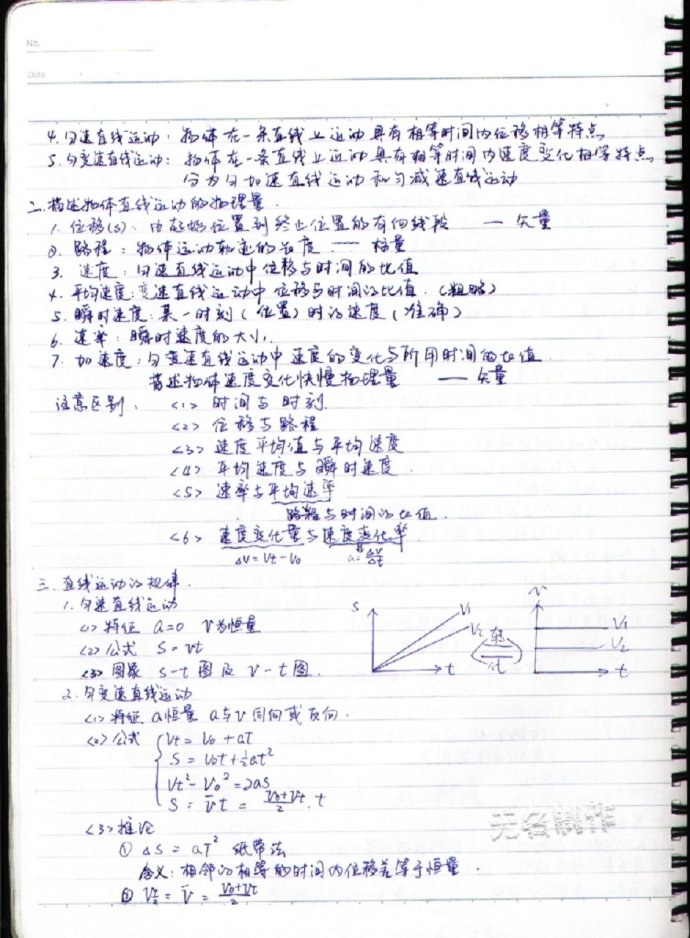 No.
Date
4. 匀速直线运动：物体在一条直线上运动具有相等时间内位移相等特点
5. 匀变速直线运动：物体在一条直线上运动具有相等时间内速度变化相等特点
分为匀加速直线运动和匀减速直线运动
二. 描述物体直线运动的物理量.
1. 位移(s)：由起始位置到终止位置的有向线段 — 矢量
2. 路程：物体运动轨迹的长度 — 标量
3. 速度：匀速直线运动中位移与时间的比值
4. 平均速度：变速直线运动中位移与时间的比值.（粗略）
5. 瞬时速度：某一时刻（位置）时的速度（准确）
6. 速率：瞬时速度的大小.
7. 加速度：匀变速直线运动中速度的变化与所用时间的比值
描述物体速度变化快慢物理量 — 矢量
注意区别. <1> 时间与时刻.
<2> 位移与路程
<3> 速度平均值与平均速度
<4> 平均速度与瞬时速度.
<5> 速率与平均速率
路程与时间的比值.
<6> 速度变化量与速度变化率
ΔV=Vt-V0 a=ΔV/Δt
三. 直线运动的规律.
1. 匀速直线运动
<1> 特征 a=0 V为恒量
<2> 公式 S=vt
<3> 图象 s-t图及v-t图.
S V1 V2 t
V V1 V2 t
2. 匀变速直线运动
<1> 特征 a恒量 a与v同向或反向.
<2> 公式 Vt = V0 + aT
S = V0t + ½at²
Vt² - V0² = 2as
S = V̄t = (V0+Vt)/2 . t
<3> 推论
① ΔS = aT² 纸带法
含义：相邻的相等的时间内位移差等于恒量.
② Vt/2 = V̄ = (V0+Vt)/2
无名制作